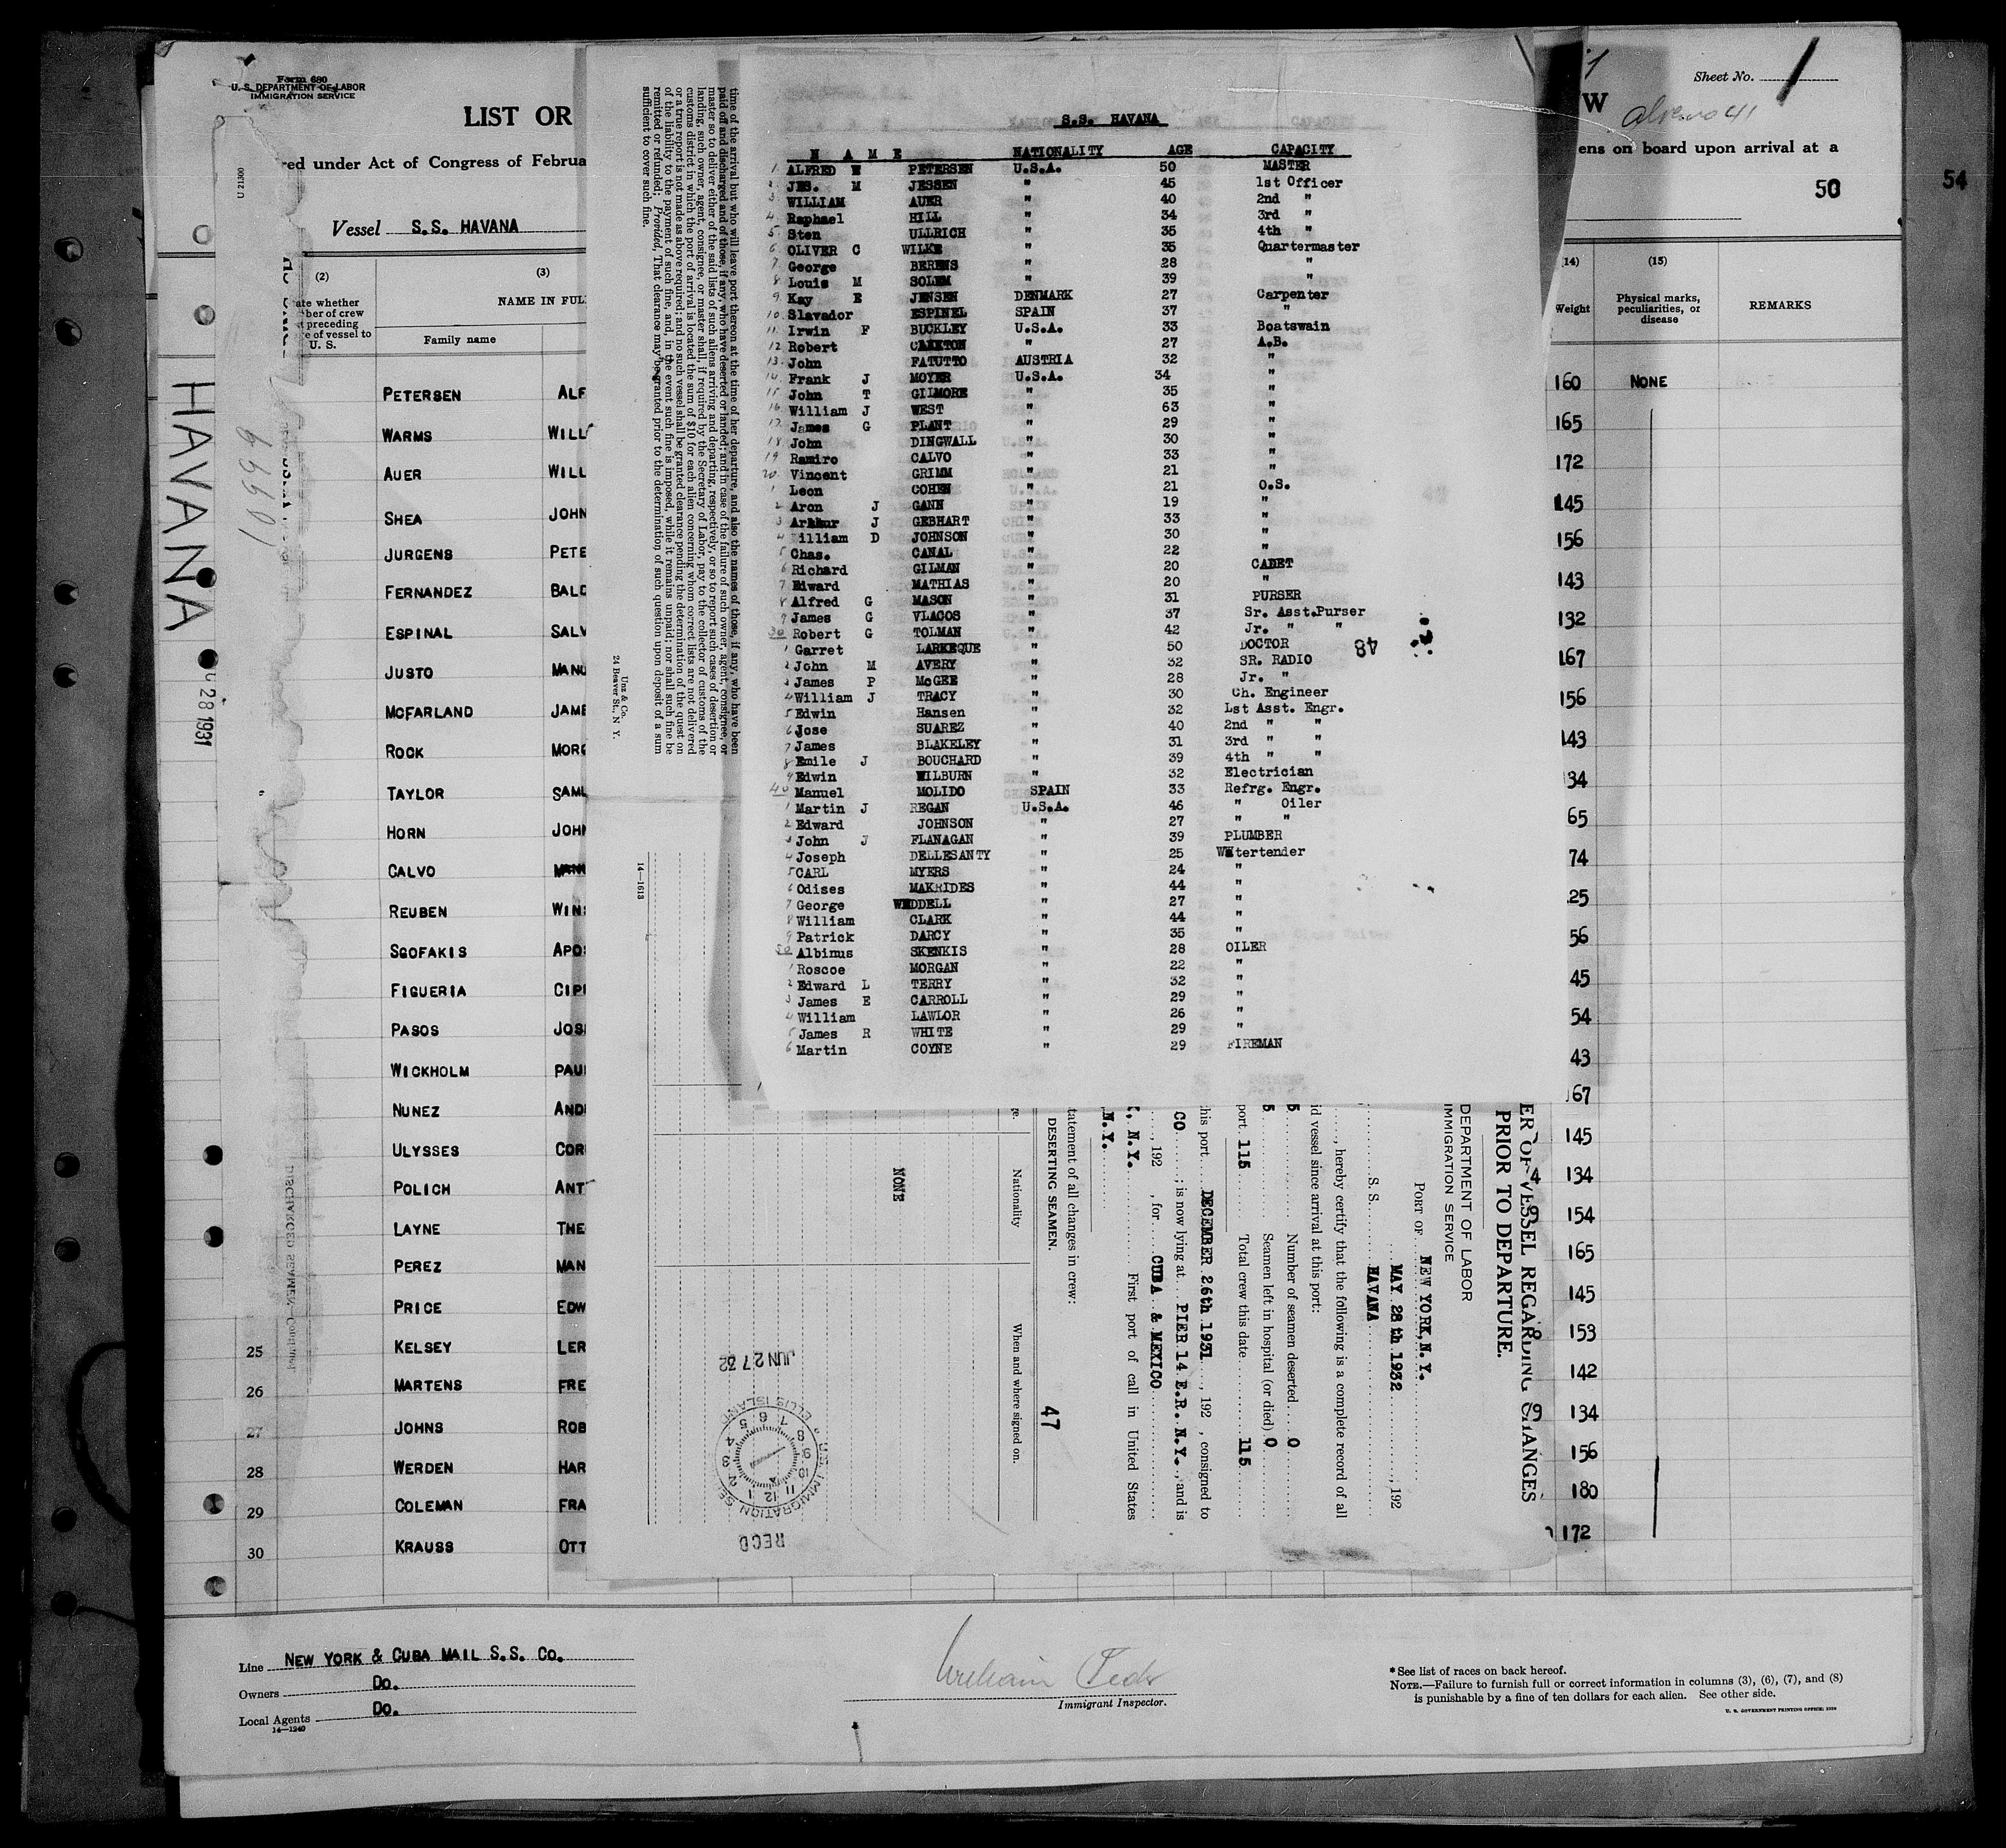 Form 680
U. S. DEPARTMENT OF LABOR
IMMIGRATION SERVICE
LIST OR
W
Sheet No. 1
red under Act of Congress of Februa
ens on board upon arrival at a
50
54
Vessel S.S. HAVANA
(2)
(3)
(14)
(15)
ate whether
ber of crew
preceding
e of vessel to
U. S.
NAME IN FUL
Family name
Weight
Physical marks,
peculiarities, or
disease
REMARKS
HAVANA
28 1931
PETERSEN ALF 160 NONE
WARMS WILL 165
AUER WILL 172
SHEA JOHN 145
JURGENS PETE 156
FERNANDEZ BALD 143
ESPINAL SALV 132
JUSTO MANU 167
MCFARLAND JAME 156
ROCK MORG 143
TAYLOR SAMU 34
HORN JOHN 65
CALVO 74
REUBEN WINS 25
SGOFAKIS APOS 56
FIGUERIA CIPR 45
PASOS JOS 54
WICKHOLM PAU 43
NUNEZ AND 67
ULYSSES COR 145
POLICH ANT 134
LAYNE THE 154
PEREZ MAN 165
PRICE EDW 145
25 KELSEY LER 153
26 MARTENS FRE 142
27 JOHNS ROB 134
28 WERDEN HAR 156
29 COLEMAN FRA 180
30 KRAUSS OTT 172
S.S. HAVANA
N A M E NATIONALITY AGE CAPACITY
1 ALFRED W PETERSEN U.S.A. 50 MASTER
2 JES. M JESSEN " 45 1st Officer
3 WILLIAM AUER " 40 2nd "
4 Raphael HILL " 34 3rd "
5 Sten ULLRICH " 35 4th "
6 OLIVER C WILKE " 35 Quartermaster
7 George BERENS " 28 "
8 Louis M SOLEM " 39 "
9 Kay E JENSEN DENMARK 27 Carpenter
10 Slavador ESPINEL SPAIN 37 "
11 Irwin F BUCKLEY U.S.A. 33 Boatswain
12 Robert CAXKTON " 27 A.B.
13 John FATUTTO AUSTRIA 32 "
14 Frank J MOYER U.S.A. 34 "
15 John T GILMORE " 35 "
16 William J WEST " 63 "
17 James G PLANT " 29 "
18 John DINGWALL " 30 "
19 Ramiro CALVO " 33 "
20 Vincent GRIMM " 21 "
1 Leon COHEN " 21 O.S.
2 Aron J GANN " 19 "
3 Arthur J GEBHART " 33 "
4 illiam D JOHNSON " 30 "
5 Chas. CANAL " 22 "
6 Richard GILMAN " 20 CADET
7 Edward MATHIAS " 20 "
8 Alfred G MASON " 31 PURSER
9 James G VLACOS " 37 Sr. Asst.Purser
30 Robert G TOLMAN " 42 Jr. " "
1 Garret LARKEQUE " 50 DOCTOR 48
2 John M AVERY " 32 SR. RADIO
3 James P McGEE " 28 Jr. "
4 William J TRACY " 30 Ch. Engineer
5 Edwin Hansen " 32 1st Asst. Engr.
6 Jose SUAREZ " 40 2nd " "
7 James BLAKELEY " 31 3rd " "
8 Emile J BOUCHARD " 39 4th " "
9 Edwin WILBURN " 32 Electrician
40 Manuel MOLIDO SPAIN 33 Refrg. Engr.
1 Martin J REGAN U.S.A. 46 " Oiler
2 Edward JOHNSON " 27 " "
3 John J FLANAGAN " 39 PLUMBER
4 Joseph DELLESANTY " 25 Watertender
5 CARL MYERS " 24 "
6 Odises MAKRIDES " 44 "
7 George WEDDELL " 27 "
8 William CLARK " 44 "
9 Patrick DARCY " 35 "
50 Albinus SKENKIS " 28 OILER
1 Roscoe MORGAN " 22 "
2 Edward L TERRY " 32 "
3 James E CARROLL " 29 "
4 William LAWLOR " 26 "
5 James R WHITE " 29 "
6 Martin COYNE " 29 FIREMAN
time of the arrival but who will leave port thereon at the time of her departure, and also the names of those, if any, who have been
paid off and discharged and of those, if any, who have deserted or landed; and in case of the failure of such owner, agent, consignee, or
master so to deliver either of the said lists of such aliens arriving and departing, respectively, or so to report such cases of desertion or
landing, such owner, agent, consignee, or master shall, if required by the Secretary of Labor, pay to the collector of customs of the
customs district in which the port of arrival is located the sum of $10 for each alien concerning whom correct lists are not delivered
or a true report is not made as above required; and no such vessel shall be granted clearance pending the determination of the quest on
of the liability to the payment of such fine, and, in the event such fine is imposed, while it remains unpaid; nor shall such fine be
remitted or refunded; Provided, That clearance may be granted prior to the determination of such question upon deposit of a sum
sufficient to cover such fine.
Unz & Co.
24 Beaver St., N. Y.
14—1613
ER OF VESSEL REGARDING CHANGES
PRIOR TO DEPARTURE.
DEPARTMENT OF LABOR
IMMIGRATION SERVICE
PORT OF NEW YORK, N.Y.
MAY 28th 1932, 192
S. S. HAVANA
, hereby certify that the following is a complete record of all
id vessel since arrival at this port:
5 Number of seamen deserted 0
5 Seamen left in hospital (or died) 0
port 115 Total crew this date 115
his port DECEMBER 26th 1931, 192 , consigned to
CO ; is now lying at PIER 14 E.R. N.Y., and is
, 192 , for CUBA & MEXICO
N.Y. First port of call in United States
N.Y.
tatement of all changes in crew:
DESERTING SEAMEN. 47
Nationality When and where signed on.
NONE
JUN 27 32
U.S. IMMIGRATION SE
ELLIS ISLAND
RECD
Line NEW YORK & CUBA MAIL S.S. CO.
Owners DO.
Local Agents DO.
14—1240
William
Immigrant Inspector.
*See list of races on back hereof.
NOTE.—Failure to furnish full or correct information in columns (3), (6), (7), and (8)
is punishable by a fine of ten dollars for each alien. See other side.
U. S. GOVERNMENT PRINTING OFFICE: